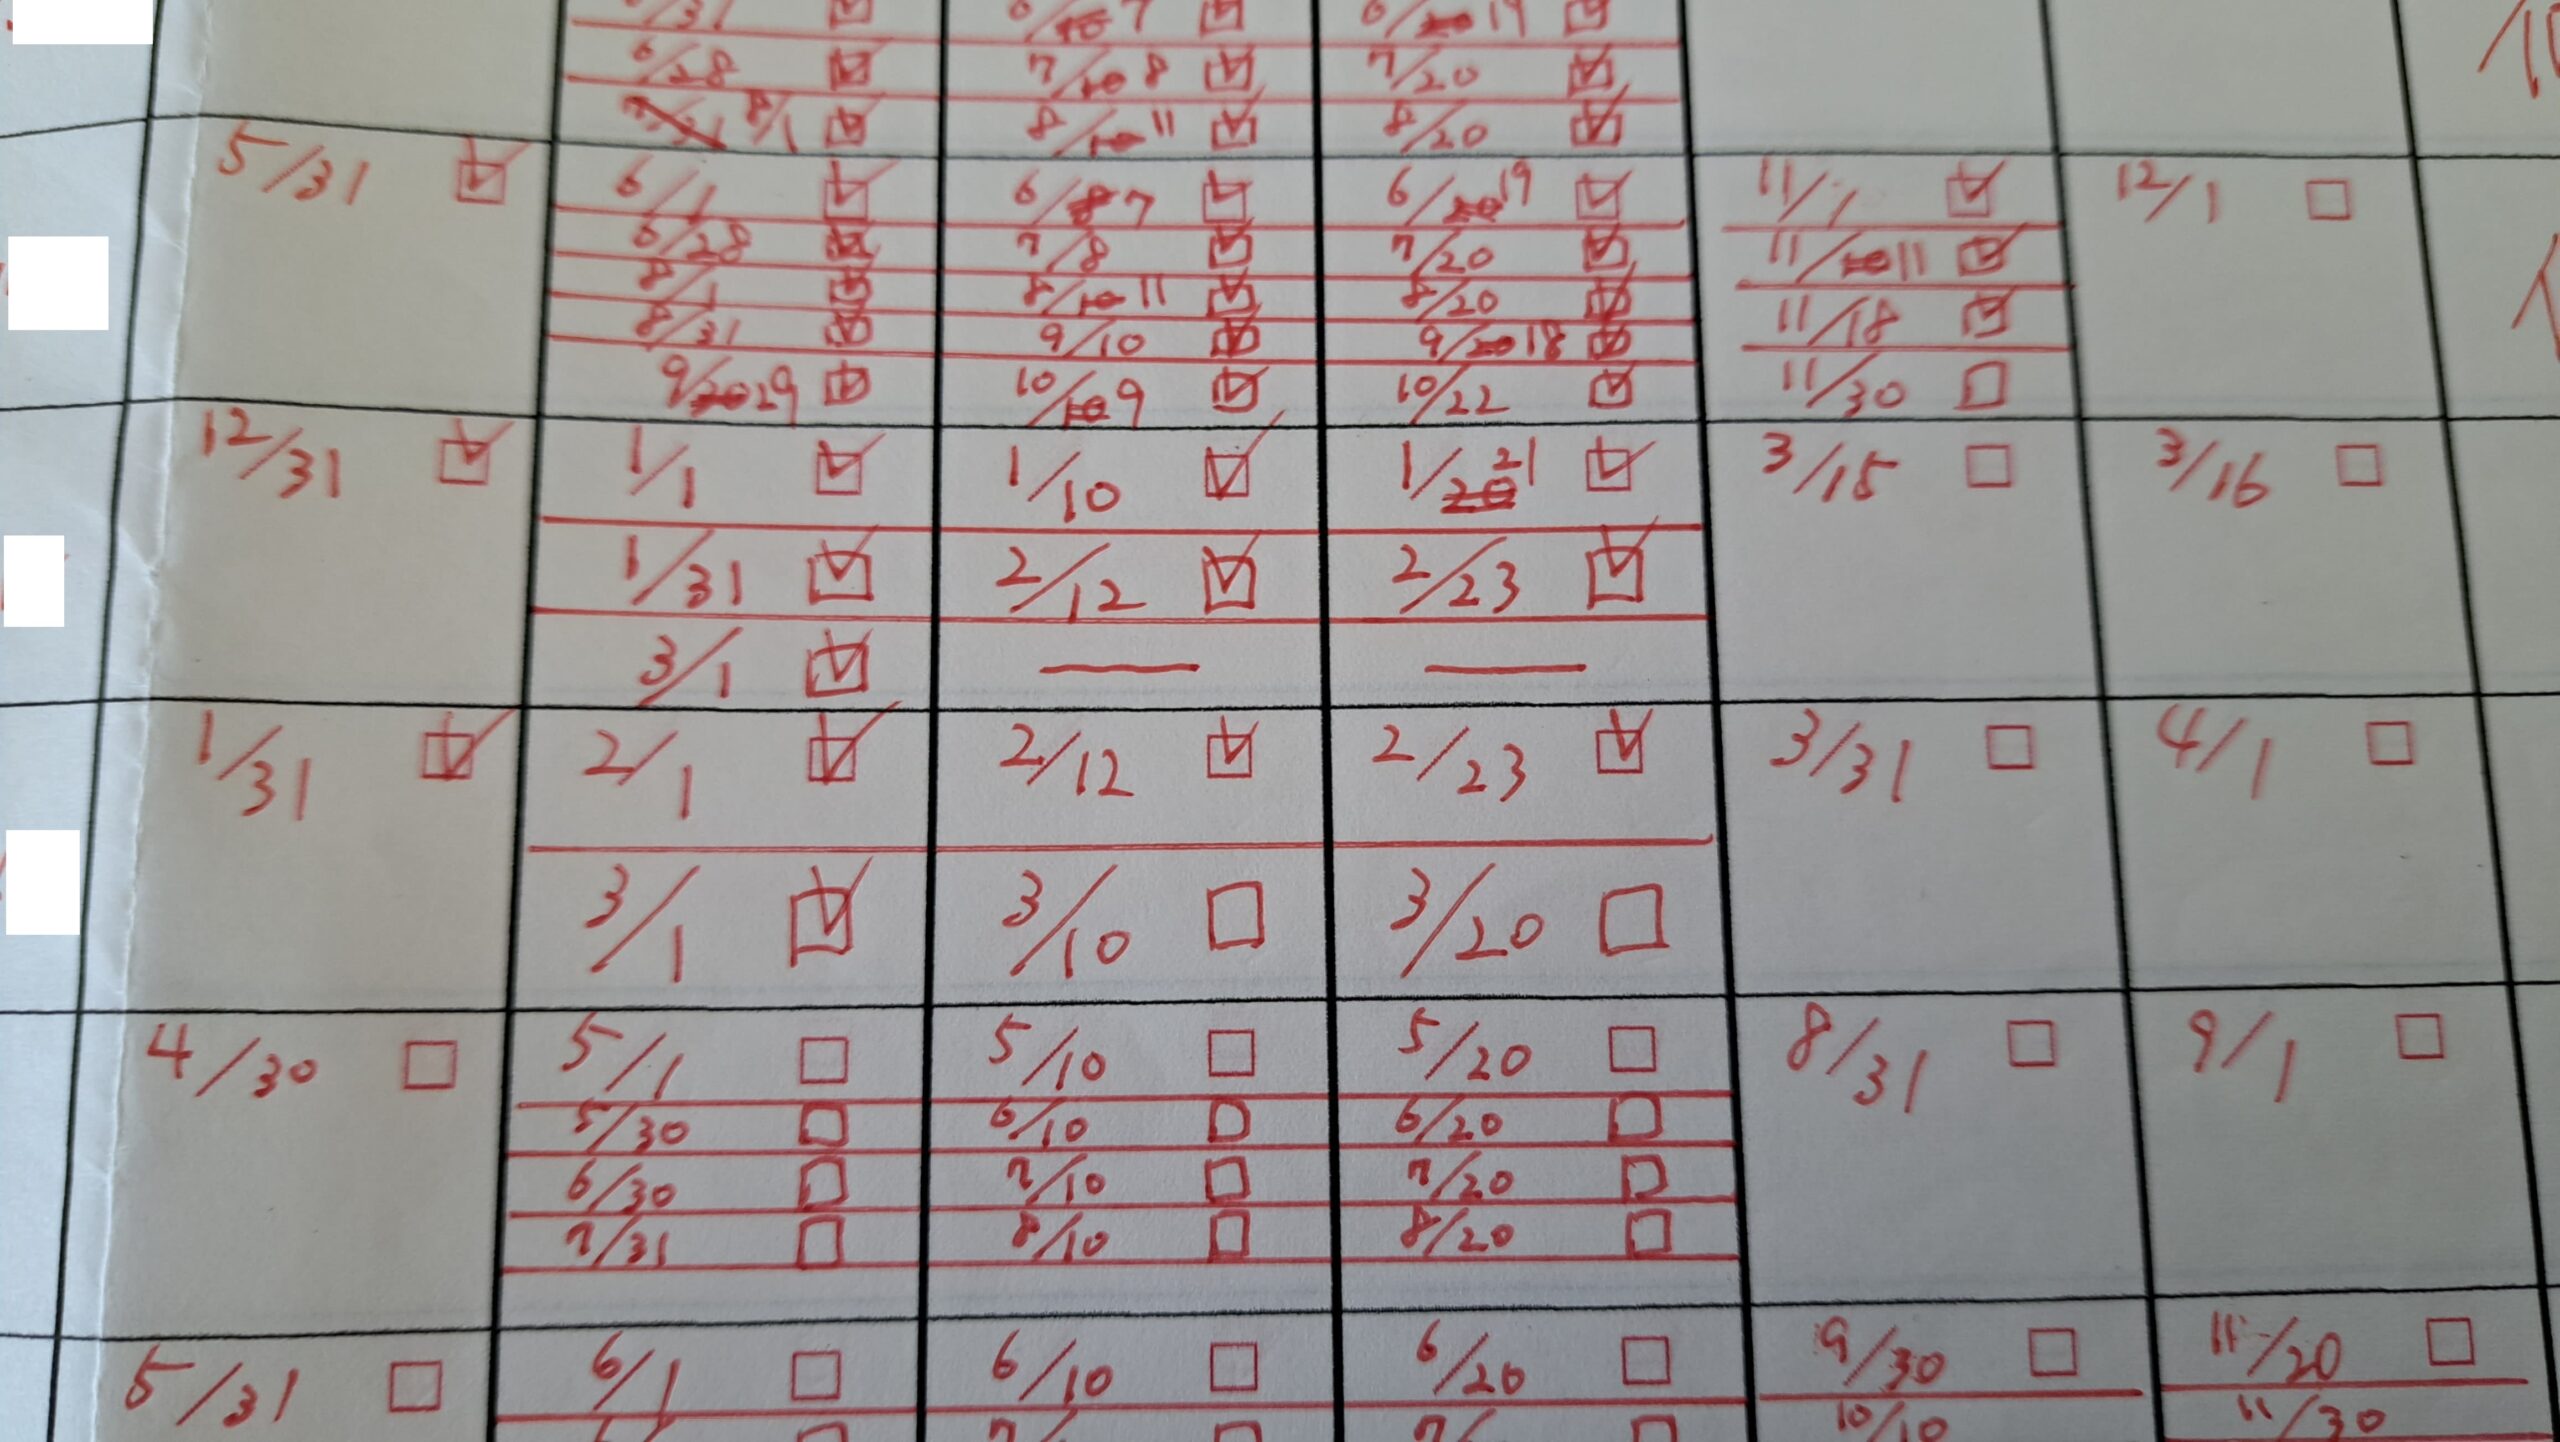 6/28 7/ 8 7/20
8/1 8/ 11 8/20
5/31 6/1 6/ 7 6/ 19 11/1 12/1
6/28 7/8 7/20 11/ 11
8/1 8/ 11 8/20 11/18
8/31 9/10 9/ 18 11/30
9/ 29 10/ 9 10/22
12/31 1/1 1/10 1/21 3/15 3/16
1/31 2/12 2/23
3/1
1/31 2/1 2/12 2/23 3/31 4/1
3/1 3/10 3/20
4/30 5/1 5/10 5/20 8/31 9/1
5/30 6/10 6/20
6/30 7/10 7/20
7/31 8/10 8/20
5/31 6/1 6/10 6/20 9/30 11/20
10/10 11/30